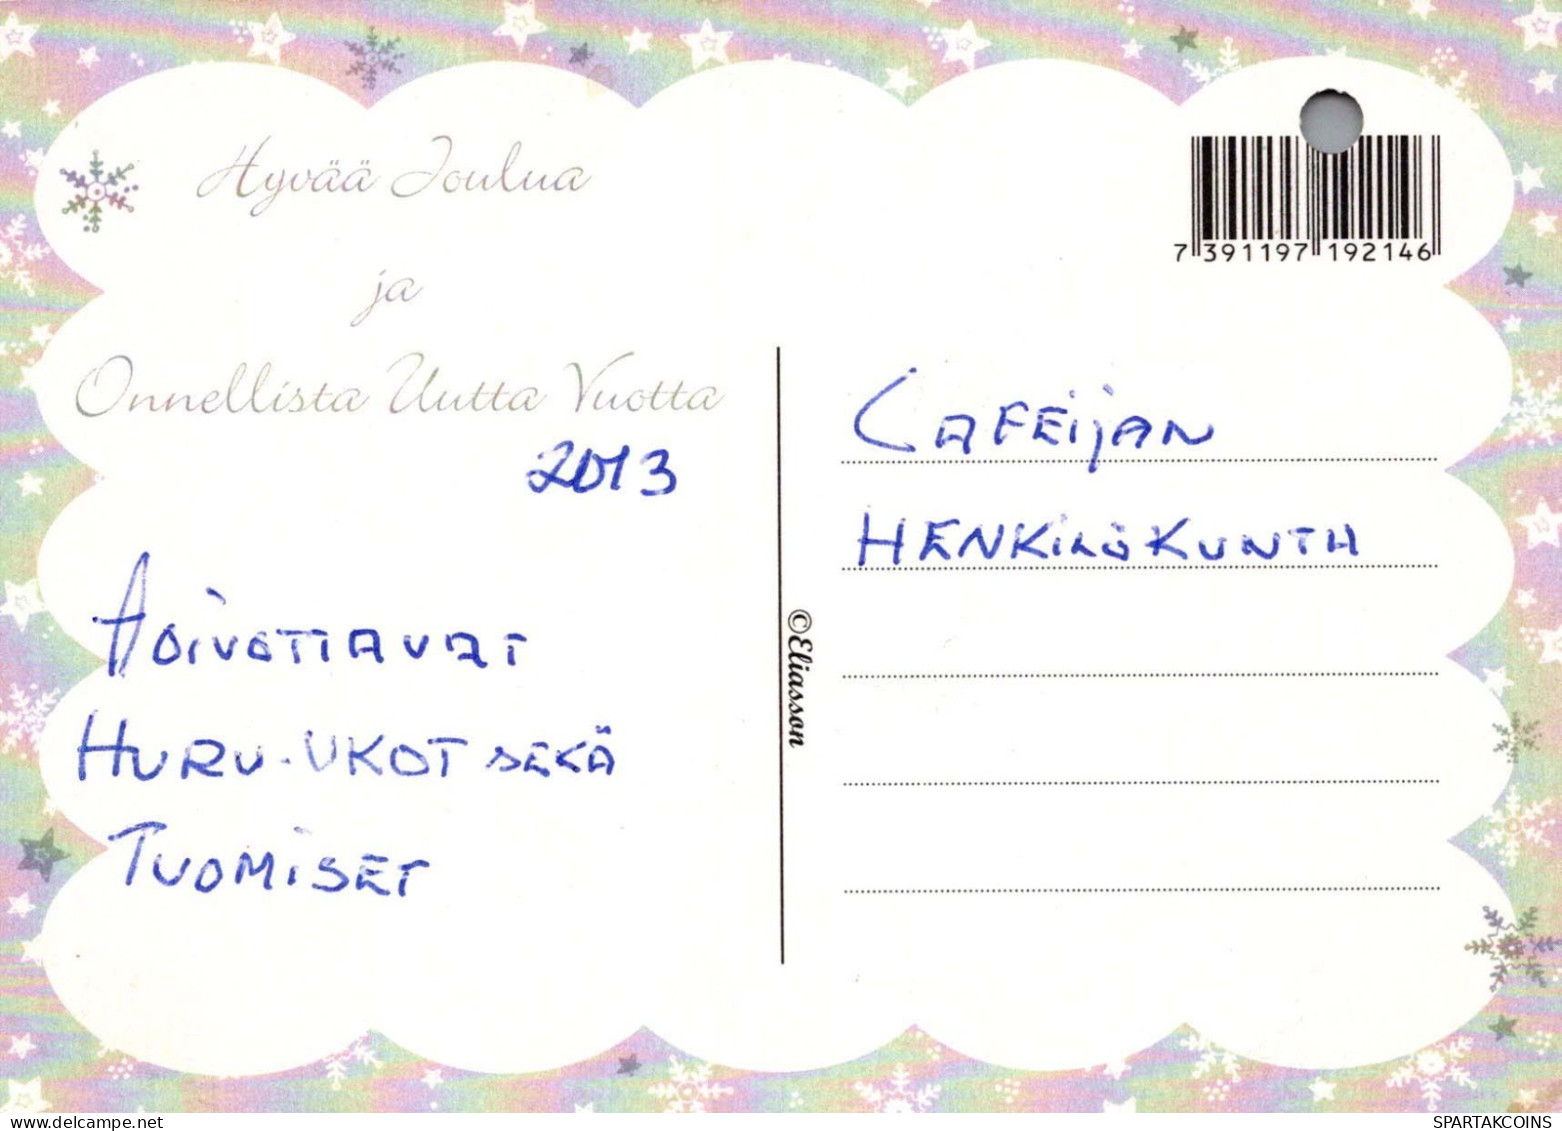 Hyvää Joulua
ja
Onnellista Uutta Vuotta
2013
HURU-UKOT SEKÄ
TUOMISET
7 391197 192146
CAFEijAN
HENKiLÖKUNTA
©Eliasson
SPARTAKCOINS